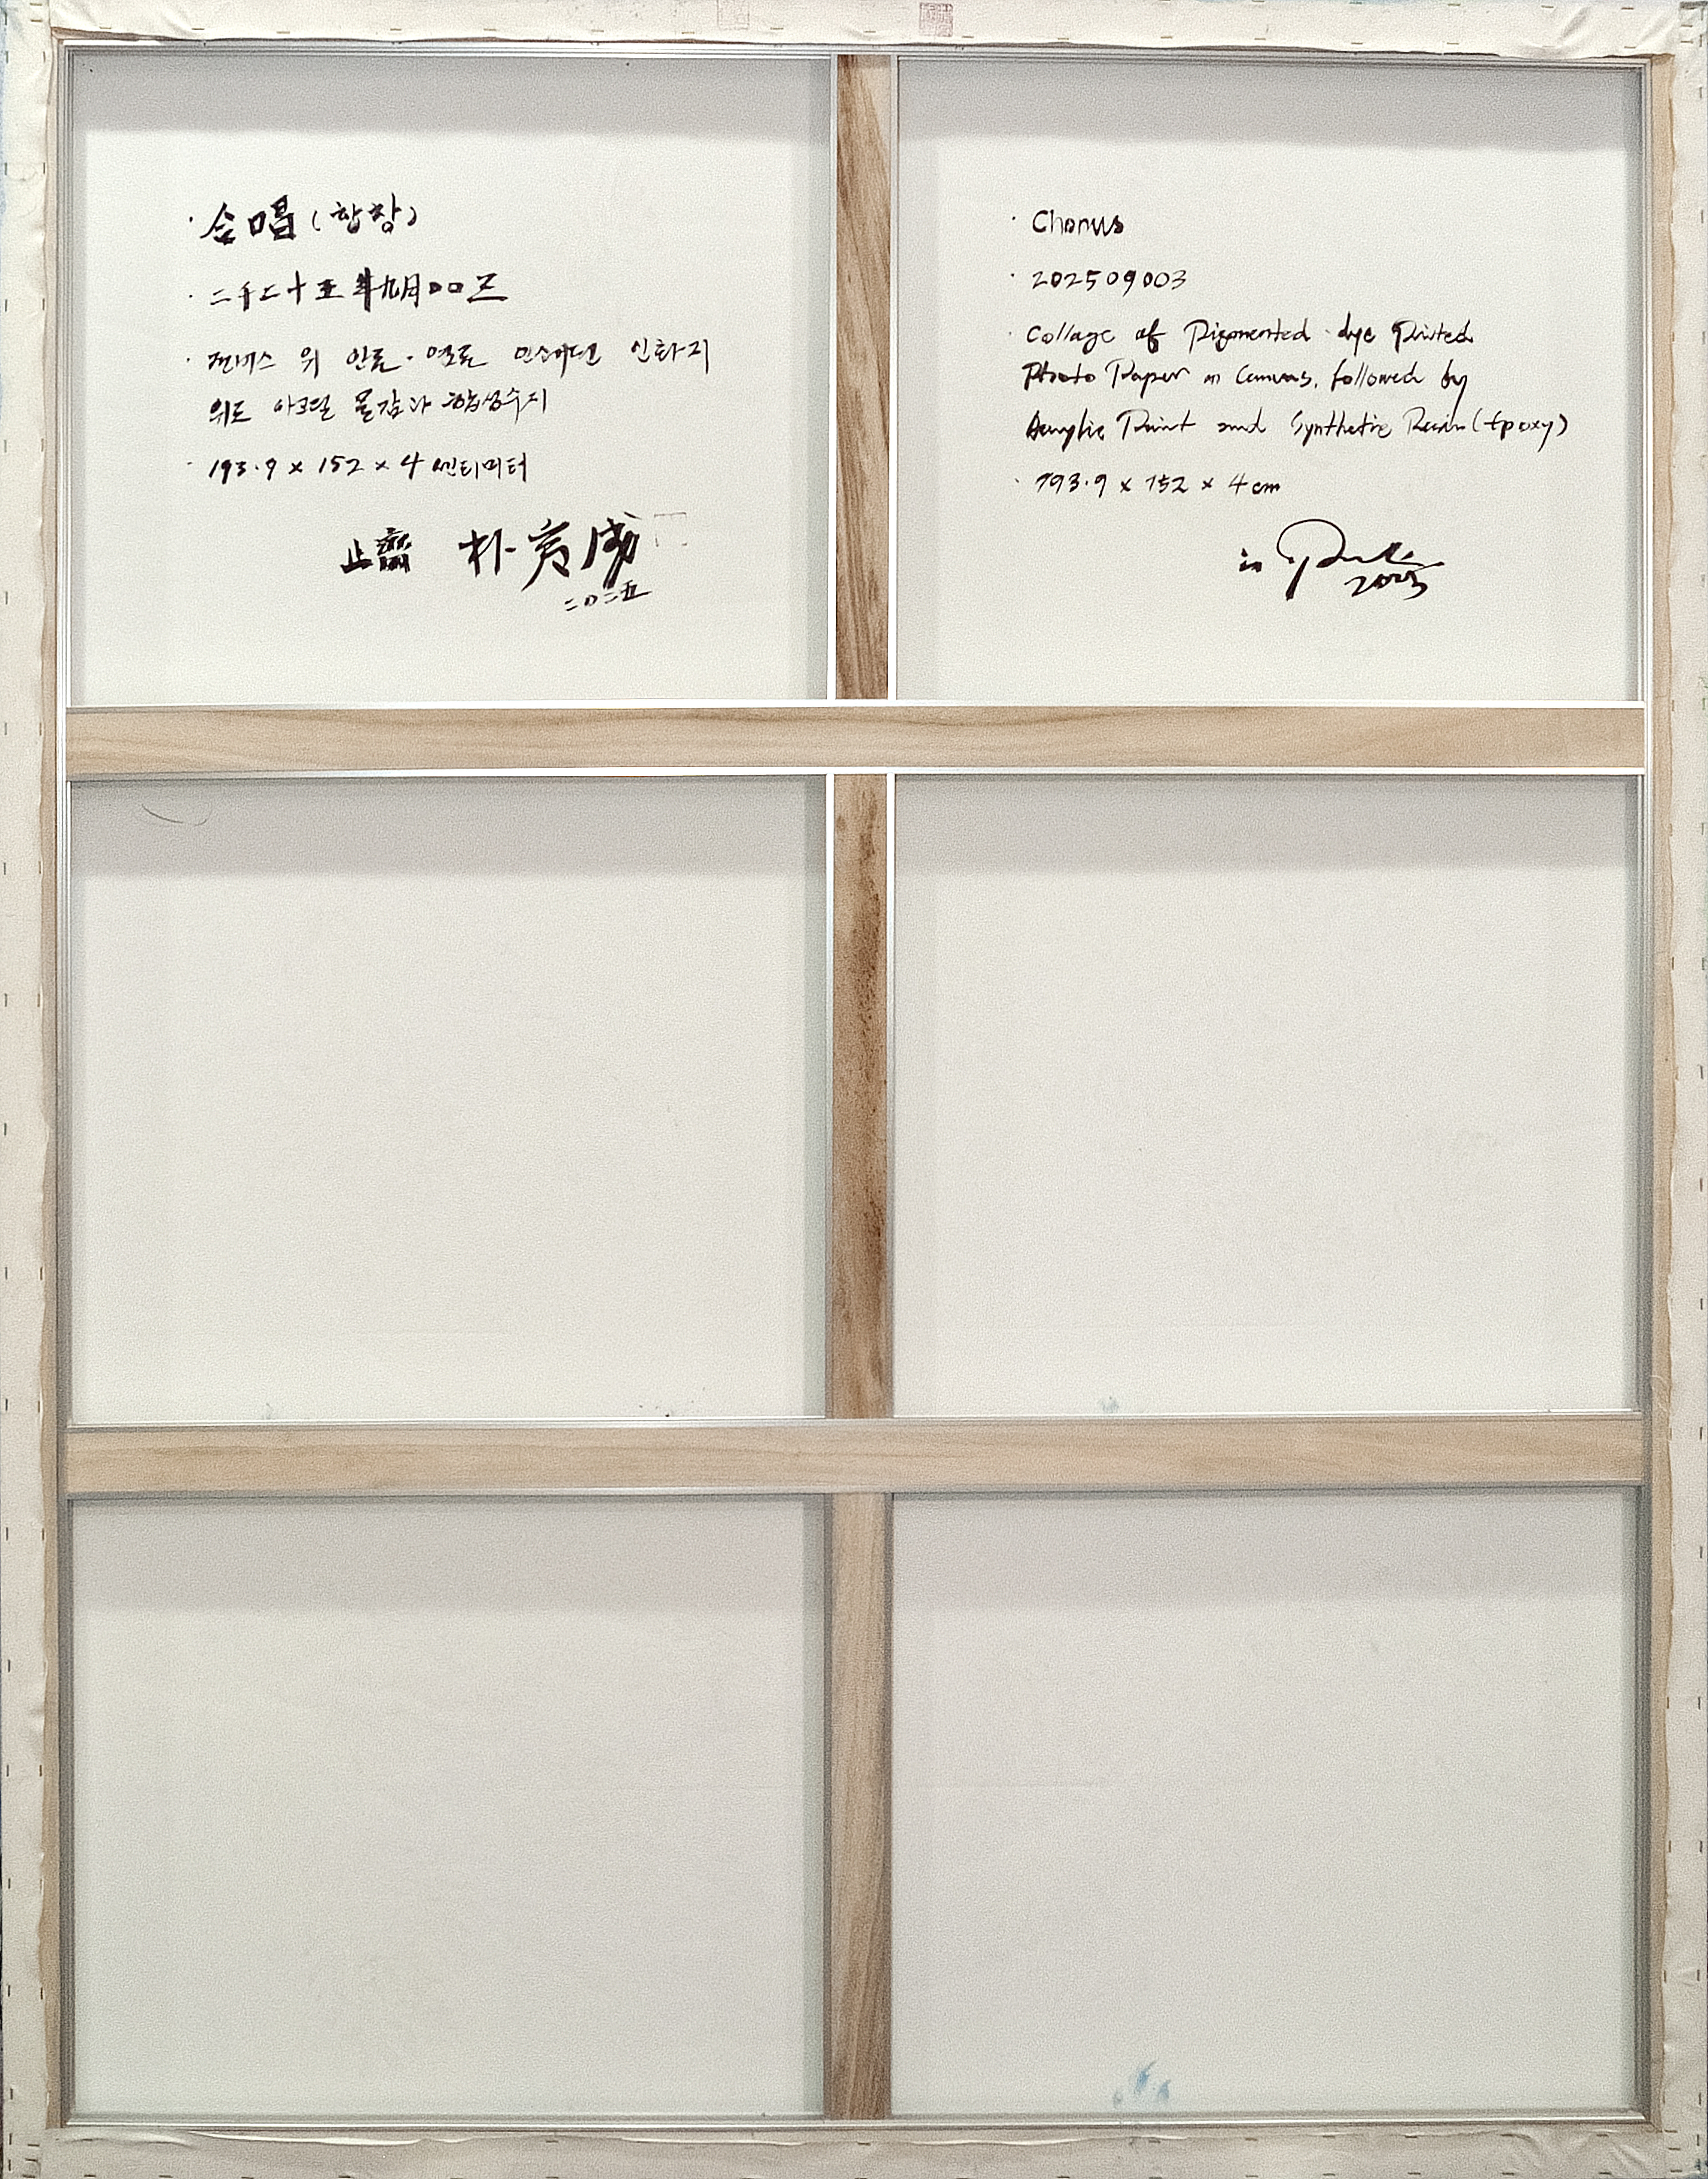 · 合唱 (합창)
· 二千二十五年九月00三
· 캔버스 위 안료·염료 인쇄된 인화지
위로 아크릴 물감과 합성수지
· 193.9 x 152 x 4 센티미터
止齋 朴夤成
二〇二五
· Chorus
· 202509003
· Collage of Pigmented dye Printed
Photo Paper on Canvas, followed by
Acrylic Paint and Synthetic Resin (Epoxy)
· 193.9 x 152 x 4 cm
2025